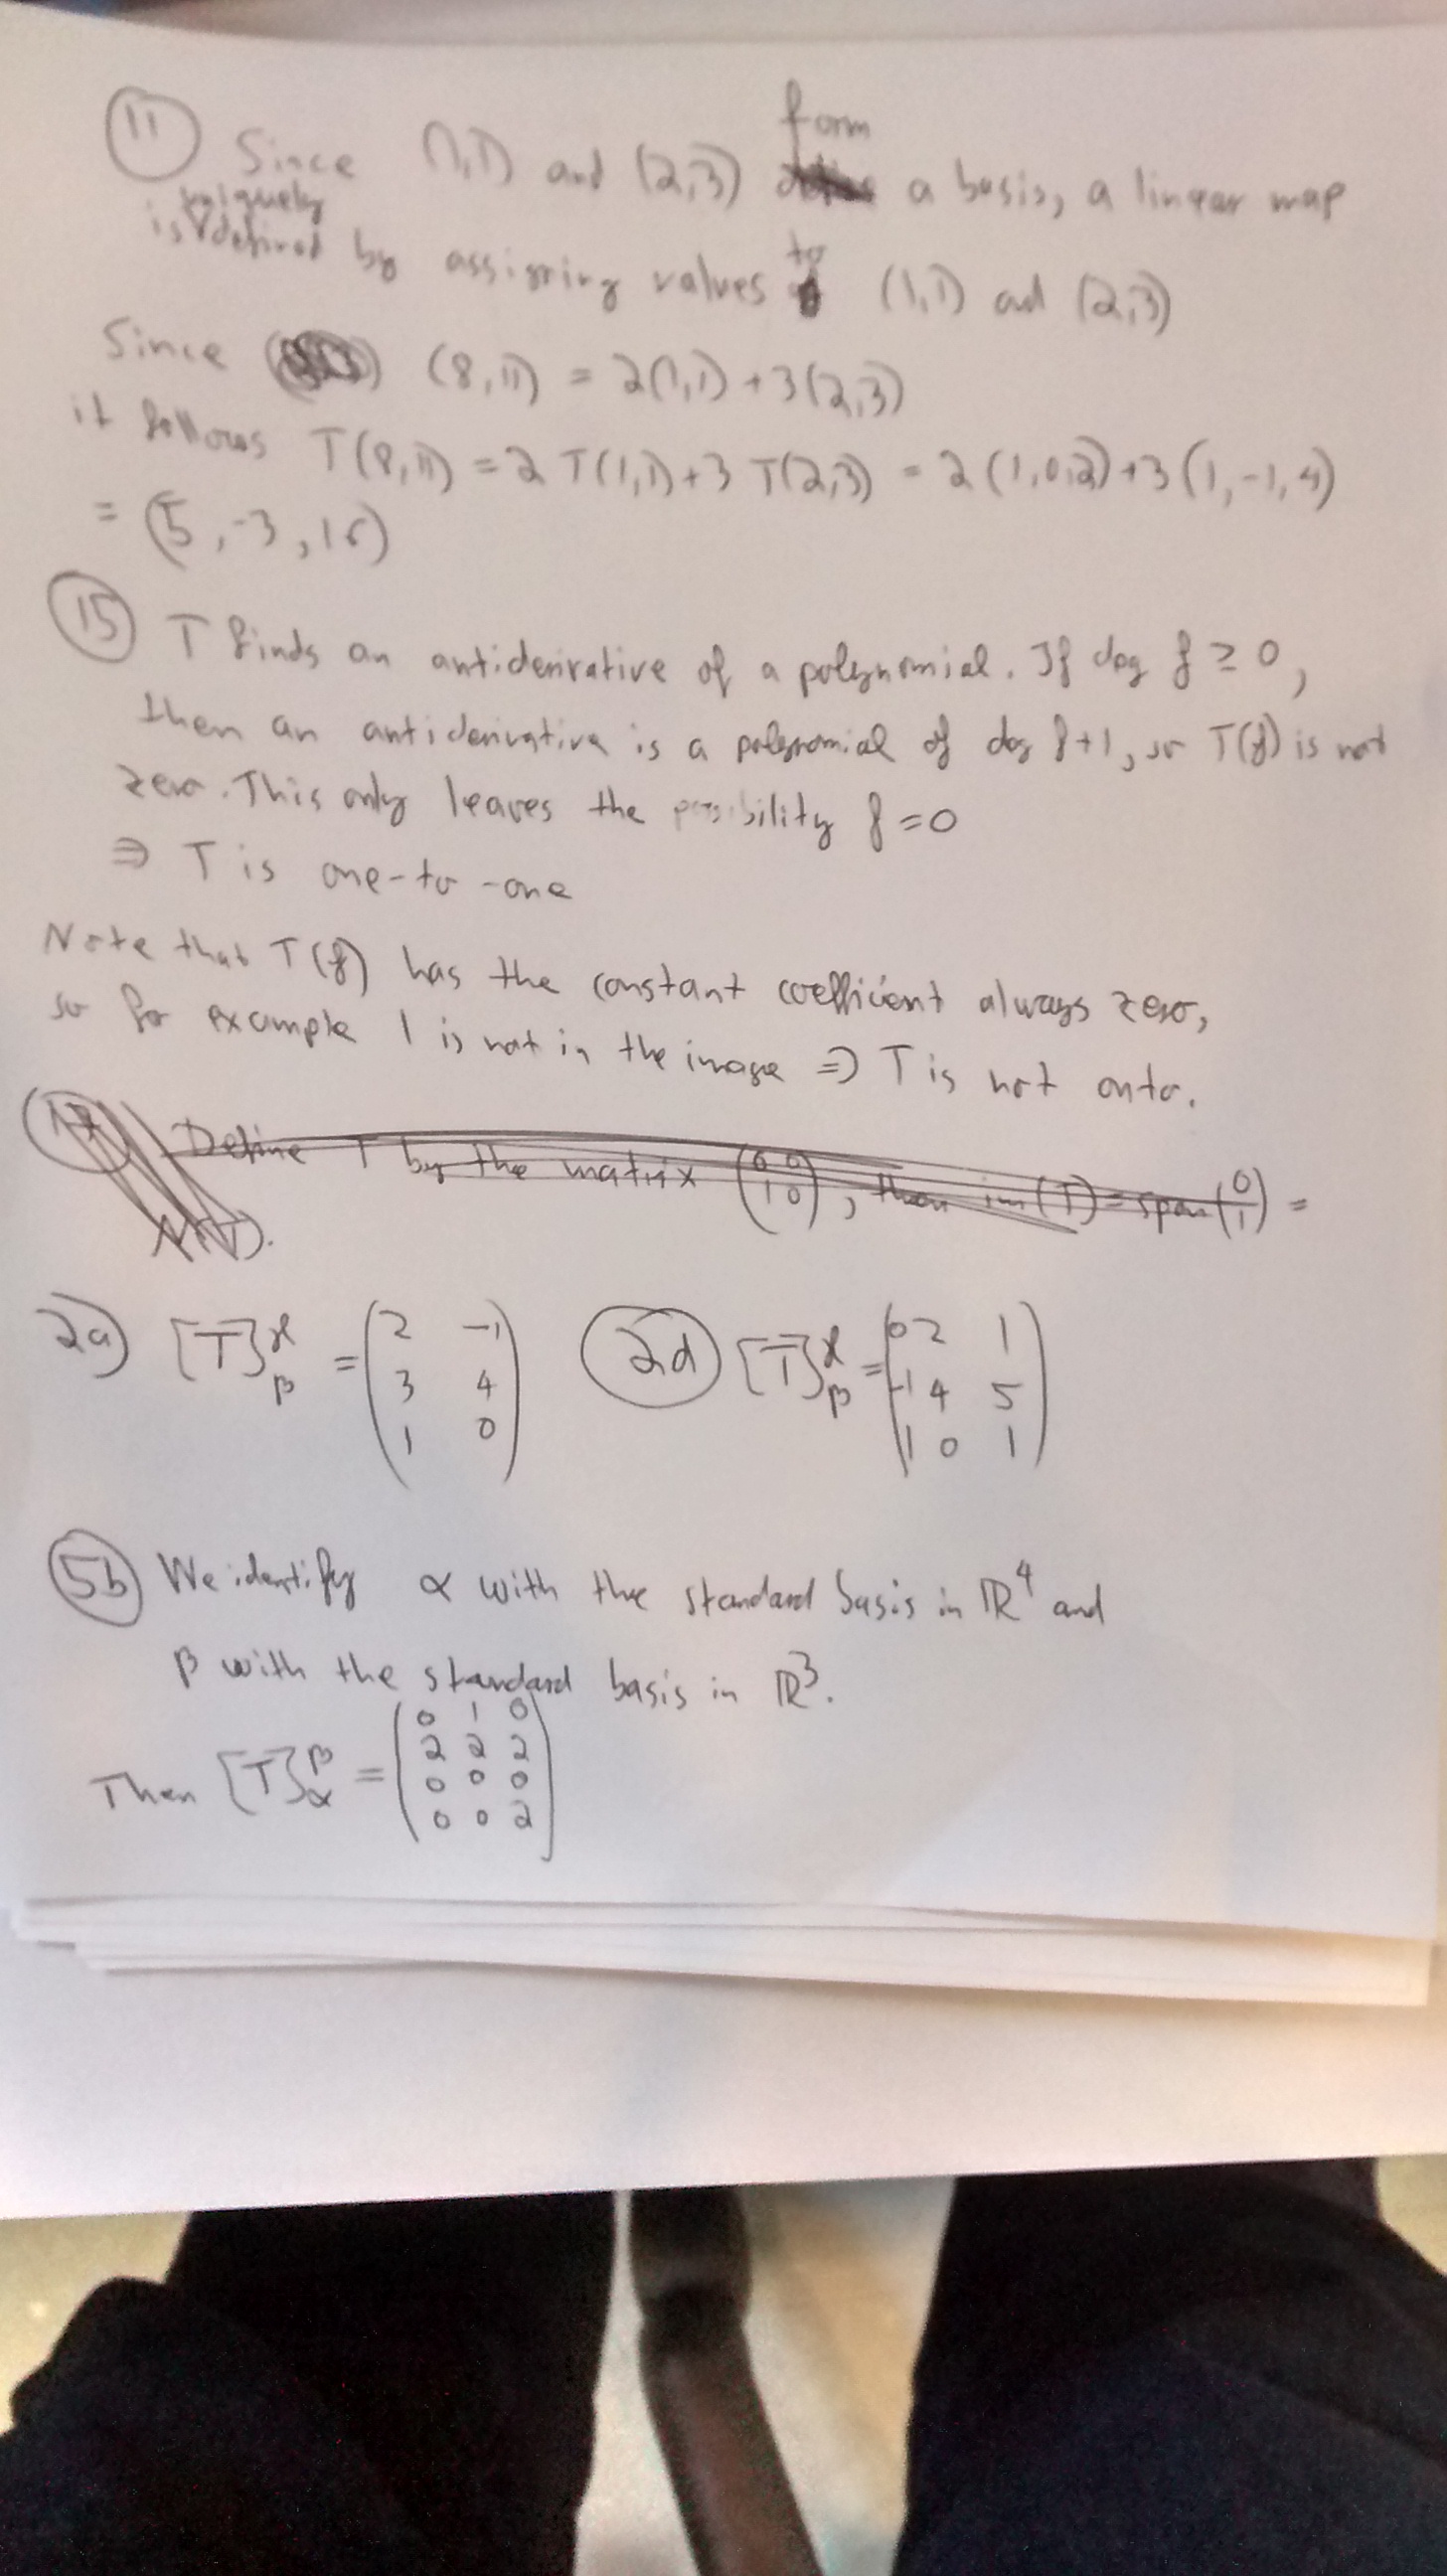 11 Since (1,1) and (2,3) form a basis, a linear map
is uniquely defined by assigning values to (1,1) and (2,3)
Since (8,11) = 2(1,1)+3(2,3)
it follows T(8,11) = 2 T(1,1)+3 T(2,3) = 2(1,0,2)+3(1,-1,4)
= (5,-3,16)
15 T finds an antiderivative of a polynomial. If deg f ≥ 0,
then an antiderivative is a polynomial of deg f+1, so T(f) is not
zero. This only leaves the possibility f=0
⇒ T is one-to-one
Note that T(f) has the constant coefficient always zero,
so for example 1 is not in the image ⇒ T is not onto.
Define T by the matrix (0 0 / 1 0), then im(T) = span(0 / 1) =
N(T).
2a) [T]γβ = (2 -1 / 3 4 / 1 0) 2d [T]γβ = (0 2 1 / -1 4 5 / 1 0 1)
5b We identify α with the standard basis in ℝ⁴ and
β with the standard basis in ℝ³.
Then [T]βα = (0 1 0 / 2 2 2 / 0 0 0 / 0 0 2)